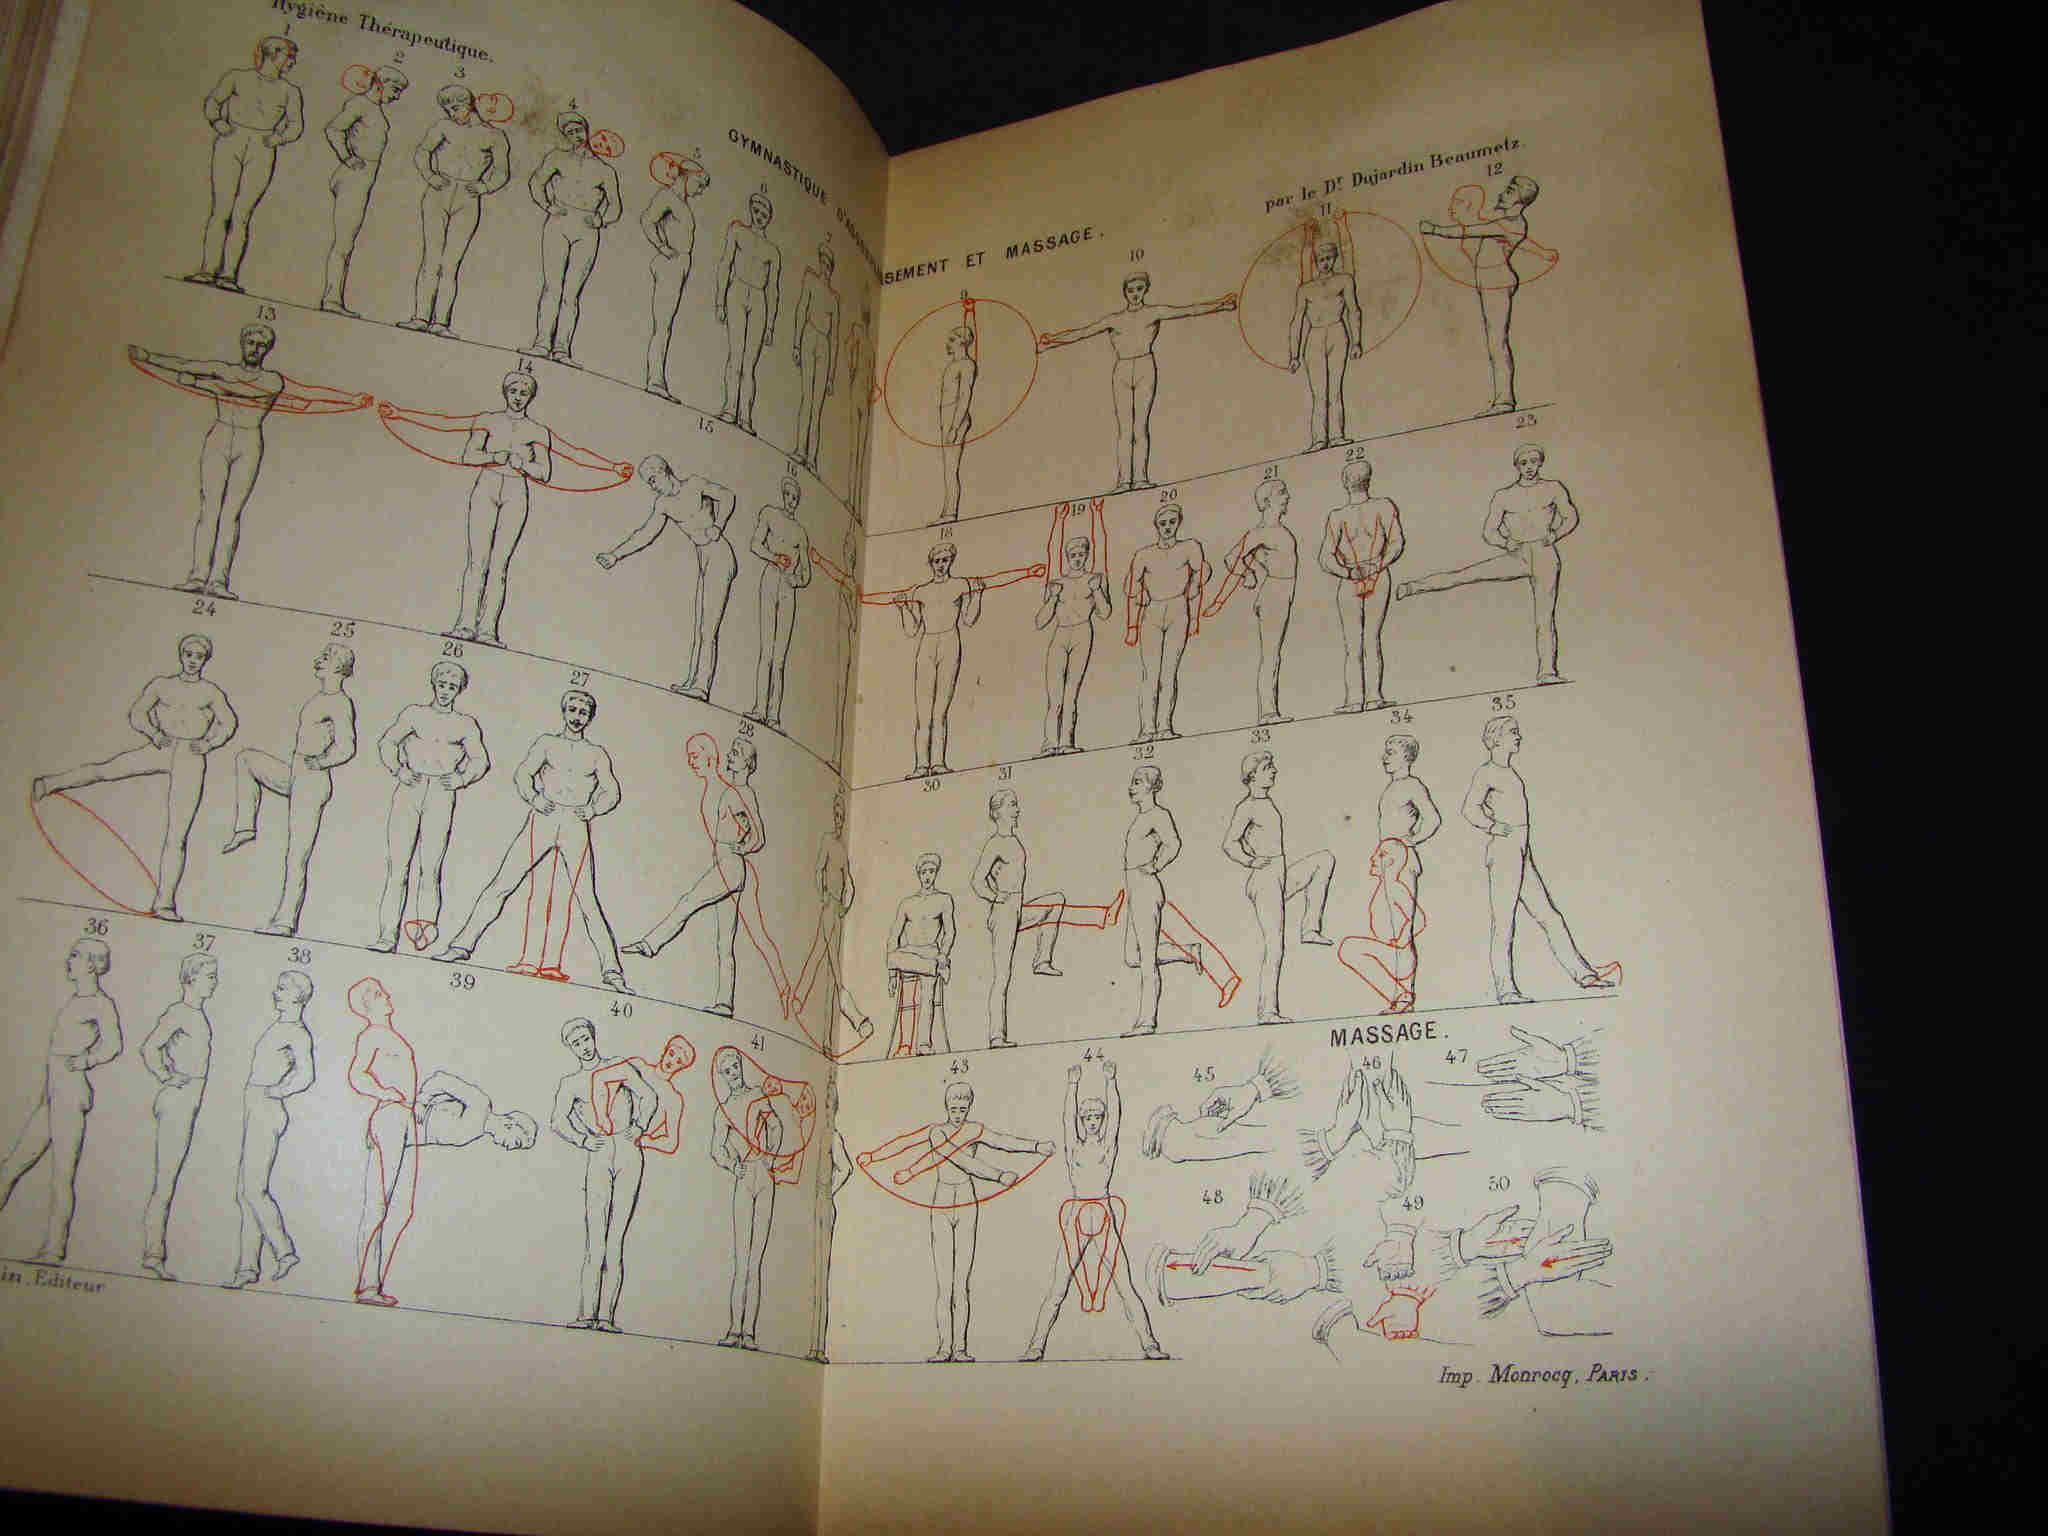 Hygiène Thérapeutique.
GYMNASTIQUE D'ASSOUPLISSEMENT ET MASSAGE.
par le Dr Dujardin Beaumetz.
1 2 3 4 5 6 7 9 10 11 12
13 14 15 16 18 19 20 21 22 23
24 25 26 27 28 30 31 32 33 34 35
36 37 38 39 40 41 43 44
MASSAGE.
45 46 47
48 49 50
in. Editeur
Imp. Monrocq, PARIS.